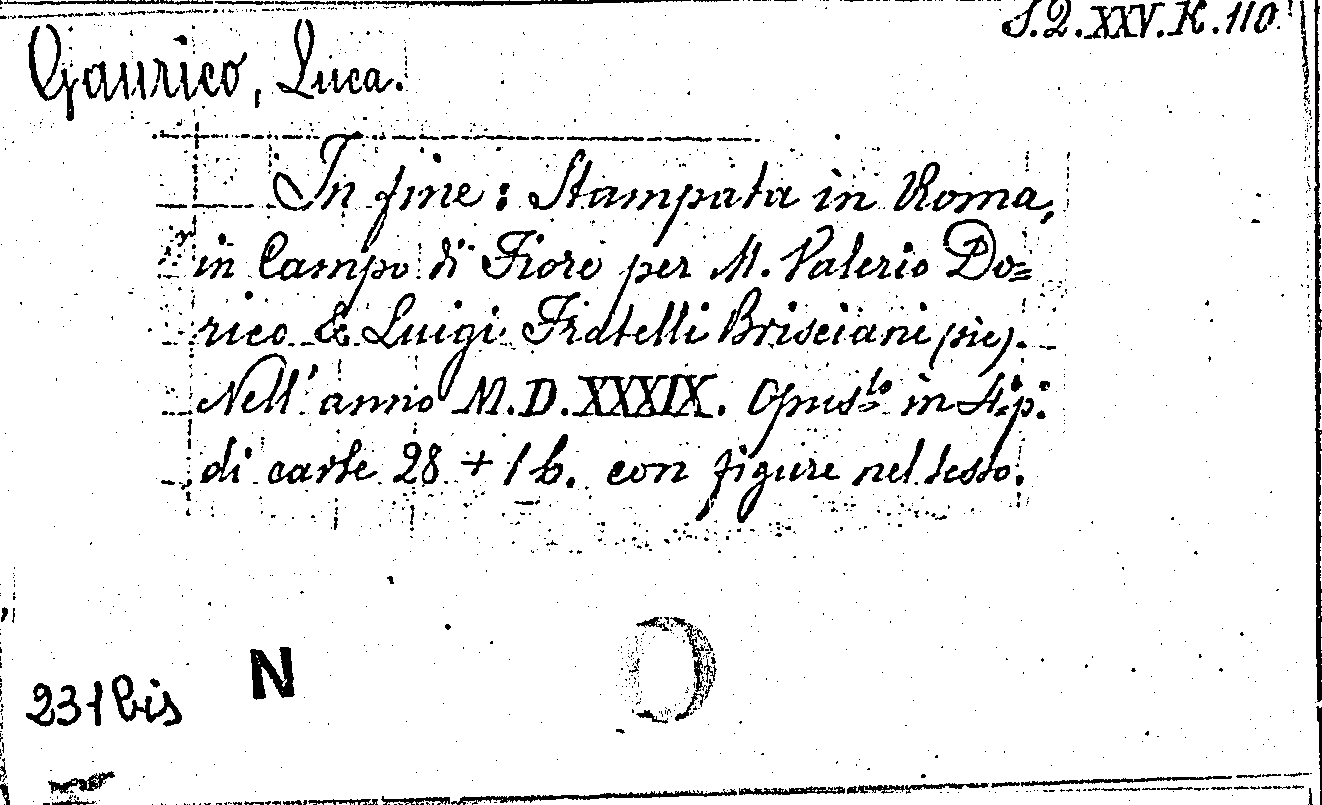 S.Q.XXV.K.110
Gaurico, Luca.
In fine: Stampata in Roma,
in Campo di Fiore per M. Valerio Do=
rico & Luigi Fratelli Brisciani (sic).
Nell' anno M.D.XXXIX. Opus.lo in 4.p.
di carte 28 + 1 b. con figure nel testo.
231 bis
N